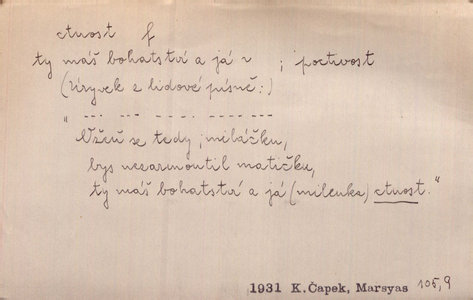 ctnost f
ty máš bohatství a já ~ ; poctivost
(Úryvek z lidové písně:)
" --- --- --- . ---- ---
Užeň se tedy, miláčku,
bys nezarmoutil matičku,
ty máš bohatství a já (milenka) ctnost."
1931 K.Čapek, Marsyas 105,9